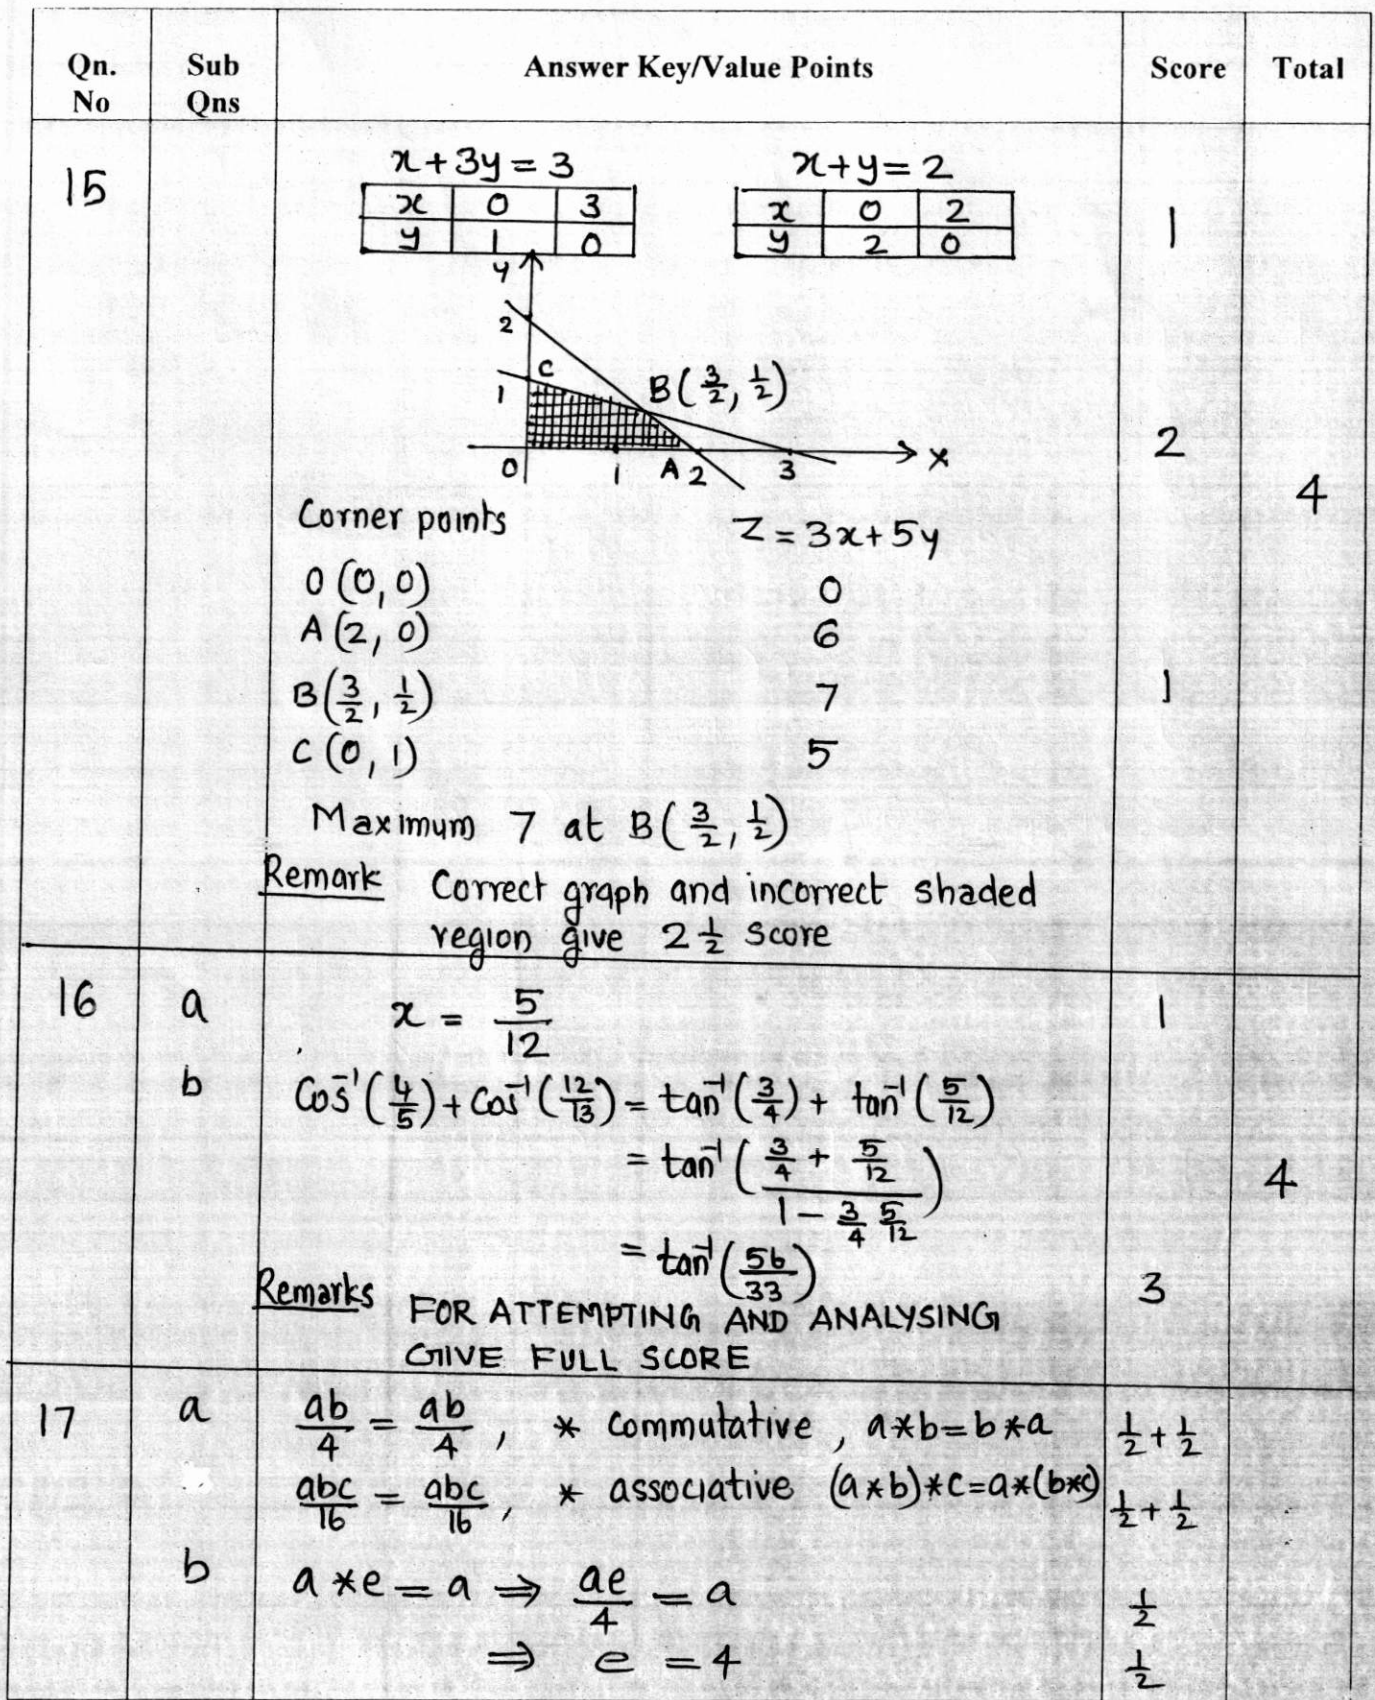 Qn. No Sub Qns Answer Key/Value Points Score Total
15
x+3y=3 x+y=2
x 0 3 x 0 2
y 1 0 y 2 0
1
y
2
C
1 B(3/2, 1/2)
0 1 A 2 3 x
2
4
Corner points Z=3x+5y
O(0,0) 0
A(2,0) 6
B(3/2, 1/2) 7 1
C(0,1) 5
Maximum 7 at B(3/2, 1/2)
Remark Correct graph and incorrect shaded
region give 2 1/2 score
16 a x = 5/12 1
b Cos⁻¹(4/5)+Cos⁻¹(12/13) = tan⁻¹(3/4) + tan⁻¹(5/12)
= tan⁻¹((3/4 + 5/12)/(1 − 3/4 5/12))
4
= tan⁻¹(56/33)
3
Remarks FOR ATTEMPTING AND ANALYSING
GIVE FULL SCORE
17 a ab/4 = ab/4, * commutative, a*b=b*a 1/2+1/2
abc/16 = abc/16, * associative (a*b)*c=a*(b*c) 1/2+1/2
b a*e = a ⇒ ae/4 = a 1/2
⇒ e = 4 1/2